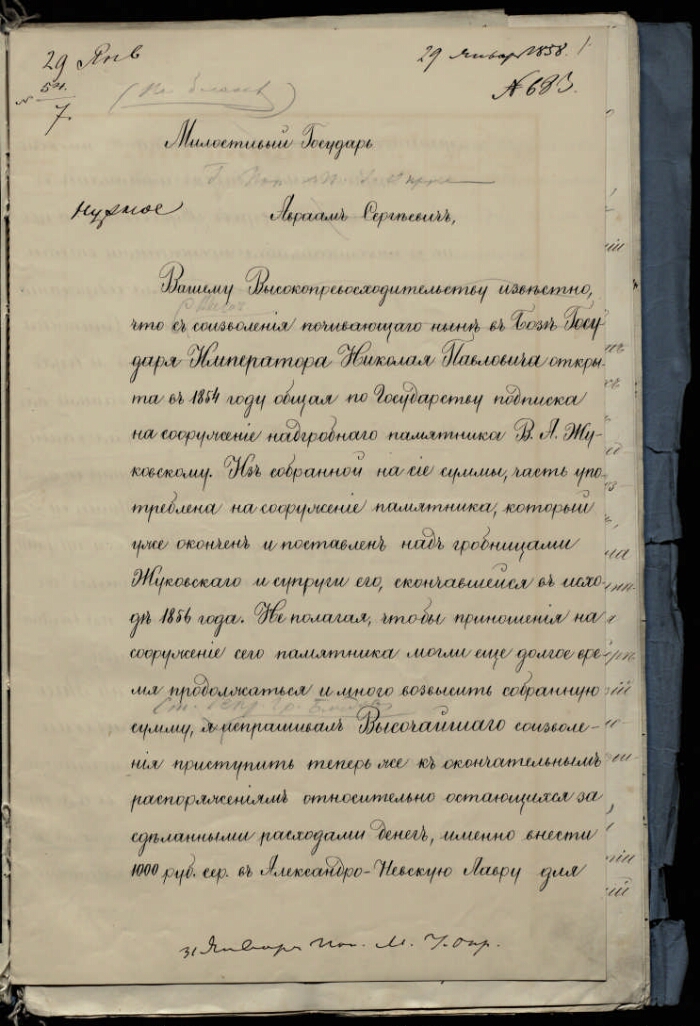 29 Янв
29 Январ 1858. 1
№ 683.
№
7.
Милостивый Государь
Нужное
Авраамъ Сергѣевичъ,
Вашему Высокопревосходительству извѣстно,
что съ соизволенія почивающаго нынѣ въ Бозѣ Госу-
даря Императора Николая Павловича откры-
та въ 1854 году общая по Государству подписка
на сооруженіе надгробнаго памятника В. А. Жу-
ковскому. Изъ собранной на сіе суммы, часть упо-
треблена на сооруженіе памятника, который
уже оконченъ и поставленъ надъ гробницами
Жуковскаго и супруги его, скончавшейся въ исхо-
дѣ 1856 года. Не полагая, чтобы приношенія на
сооруженіе сего памятника могли еще долгое вре-
мя продолжаться и много возвысить собранную
сумму, я испрашивалъ Высочайшаго соизволе-
нія приступить теперь же къ окончательнымъ
распоряженіямъ относительно остающихся за
сдѣланными расходами денегъ, именно внести
1000 руб. сер. въ Александро-Невскую Лавру для
31 Января М. У. окр.